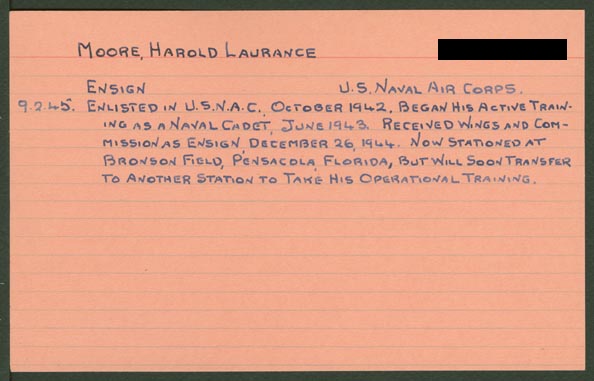 MOORE, HAROLD LAURANCE
ENSIGN U.S. NAVAL AIR CORPS.
9.2.45. ENLISTED IN U.S.N.A.C., OCTOBER 1942. BEGAN HIS ACTIVE TRAIN-
ING AS A NAVAL CADET, JUNE 1943. RECEIVED WINGS AND COM-
MISSION AS ENSIGN, DECEMBER 26, 1944. NOW STATIONED AT
BRONSON FIELD, PENSACOLA, FLORIDA, BUT WILL SOON TRANSFER
TO ANOTHER STATION TO TAKE HIS OPERATIONAL TRAINING.